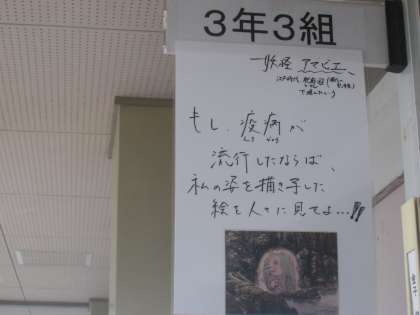 3年3組
妖怪 アマビエ、
もし、疫病が
えき びょう
流行したならば、
私の姿を描き写した
絵を人々に見せよ…!!